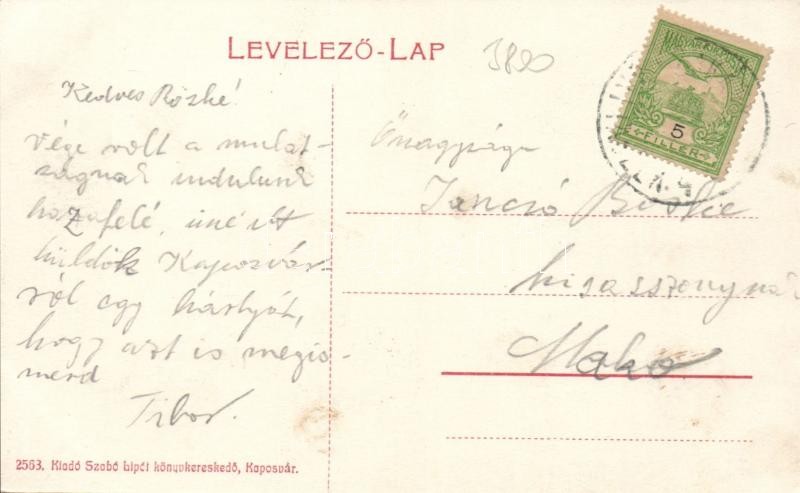 LEVELEZŐ-LAP
3890
MAGYAR KIR. POSTA
5
FILLÉR
Kedves Böske!
Vége volt a mulat-
ságnak indulunk
hazafelé,
küldök Kaposvár-
ról egy kártyát,
hogy azt is megis-
merd
Tibor.
Őnagysága
Jancsó Böske
kisasszonynak
Makó
2563. Kiadó Szabó Lipót könyvkereskedő, Kaposvár.